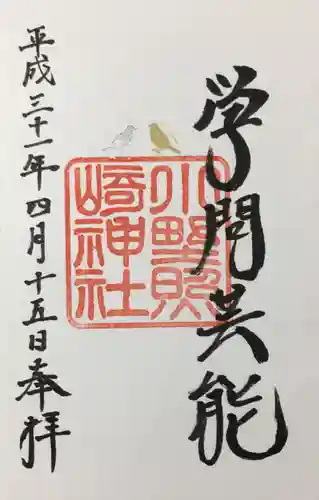 学問芸能
小野照
崎神社
平成三十一年四月十五日奉拝